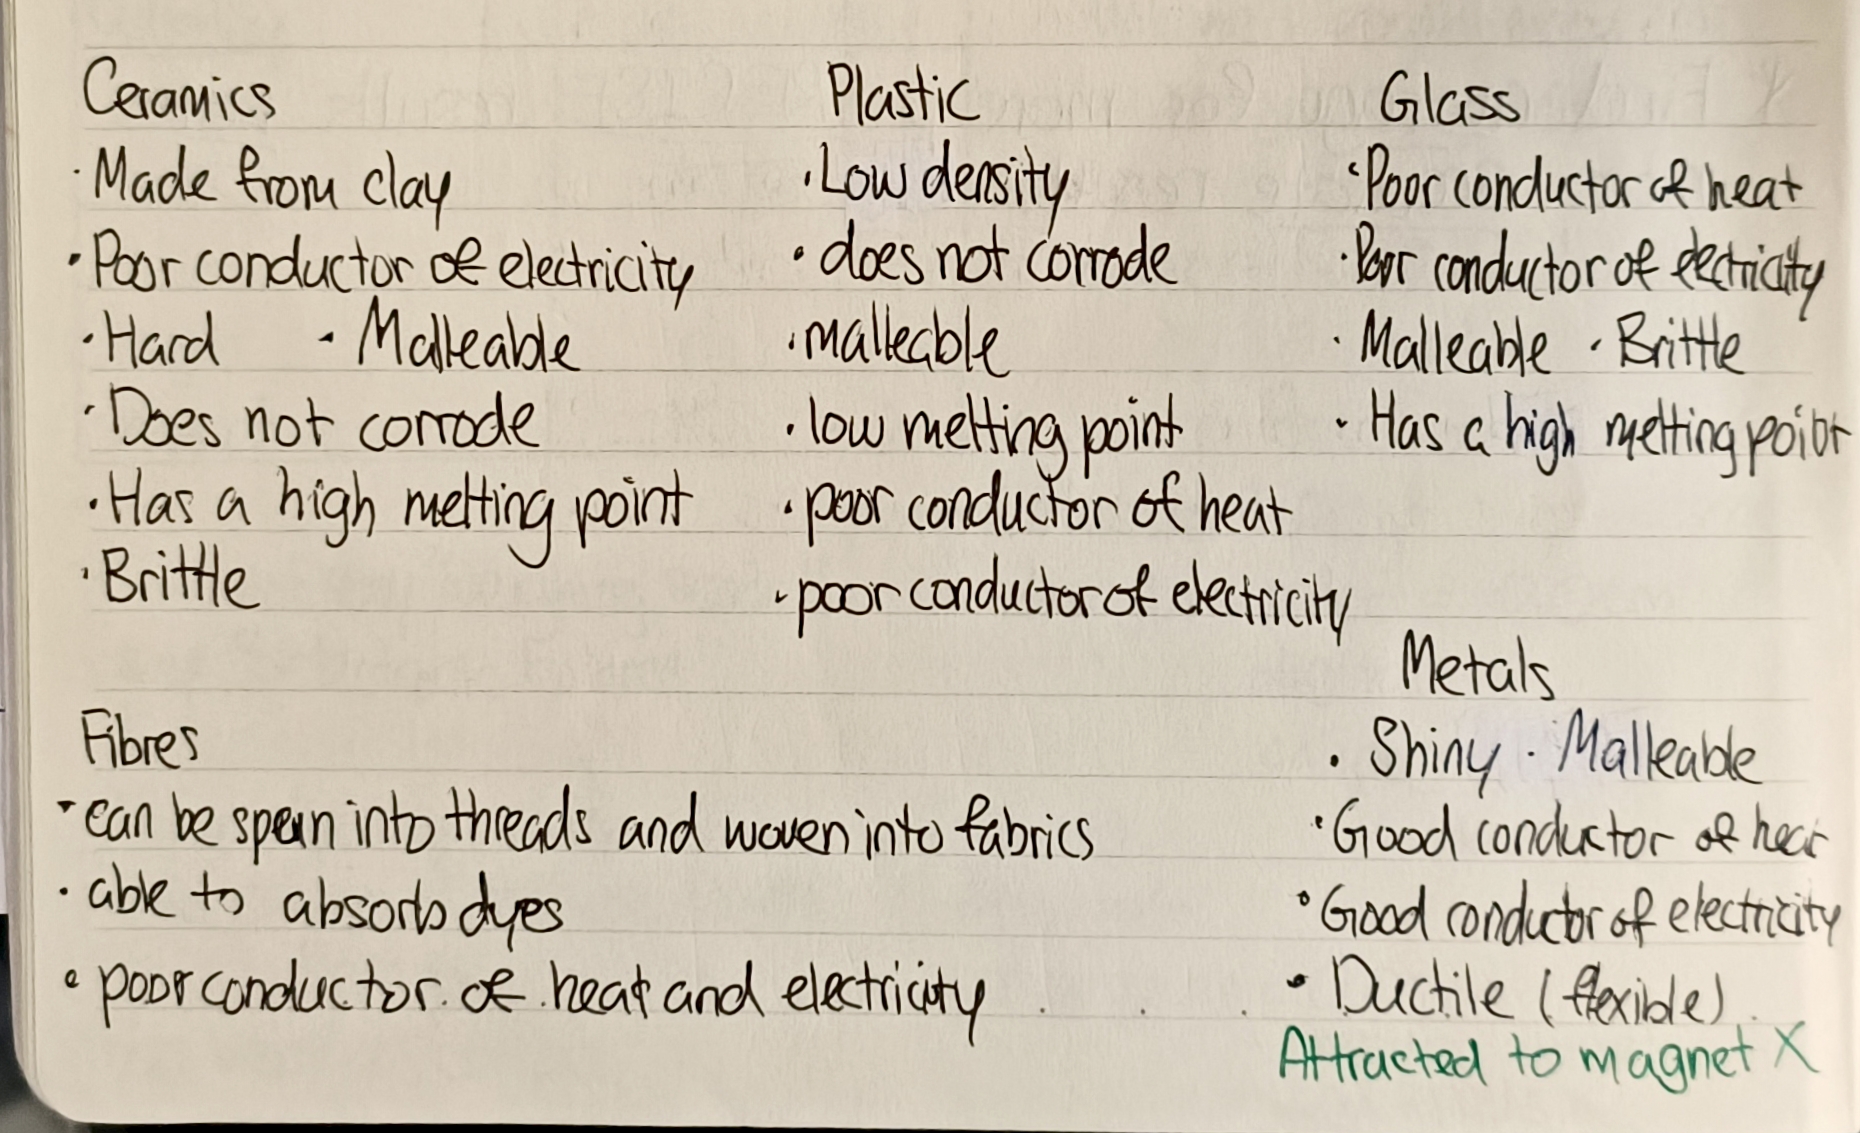 Ceramics
· Made from clay
· Poor conductor of electricity
· Hard · Malleable
· Does not corrode
· Has a high melting point
· Brittle
Plastic
· Low density
· does not corrode
· malleable
· low melting point
· poor conductor of heat
· poor conductor of electricity
Glass
· Poor conductor of heat
· Poor conductor of electricity
· Malleable · Brittle
· Has a high melting point
Fibres
· can be spun into threads and woven into fabrics
· able to absorb dyes
· poor conductor of heat and electricity
Metals
· Shiny · Malleable
· Good conductor of heat
· Good conductor of electricity
· Ductile (flexible)
Attracted to magnet X